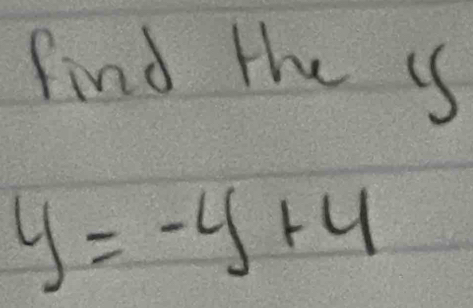 find the y
y = -y + 4